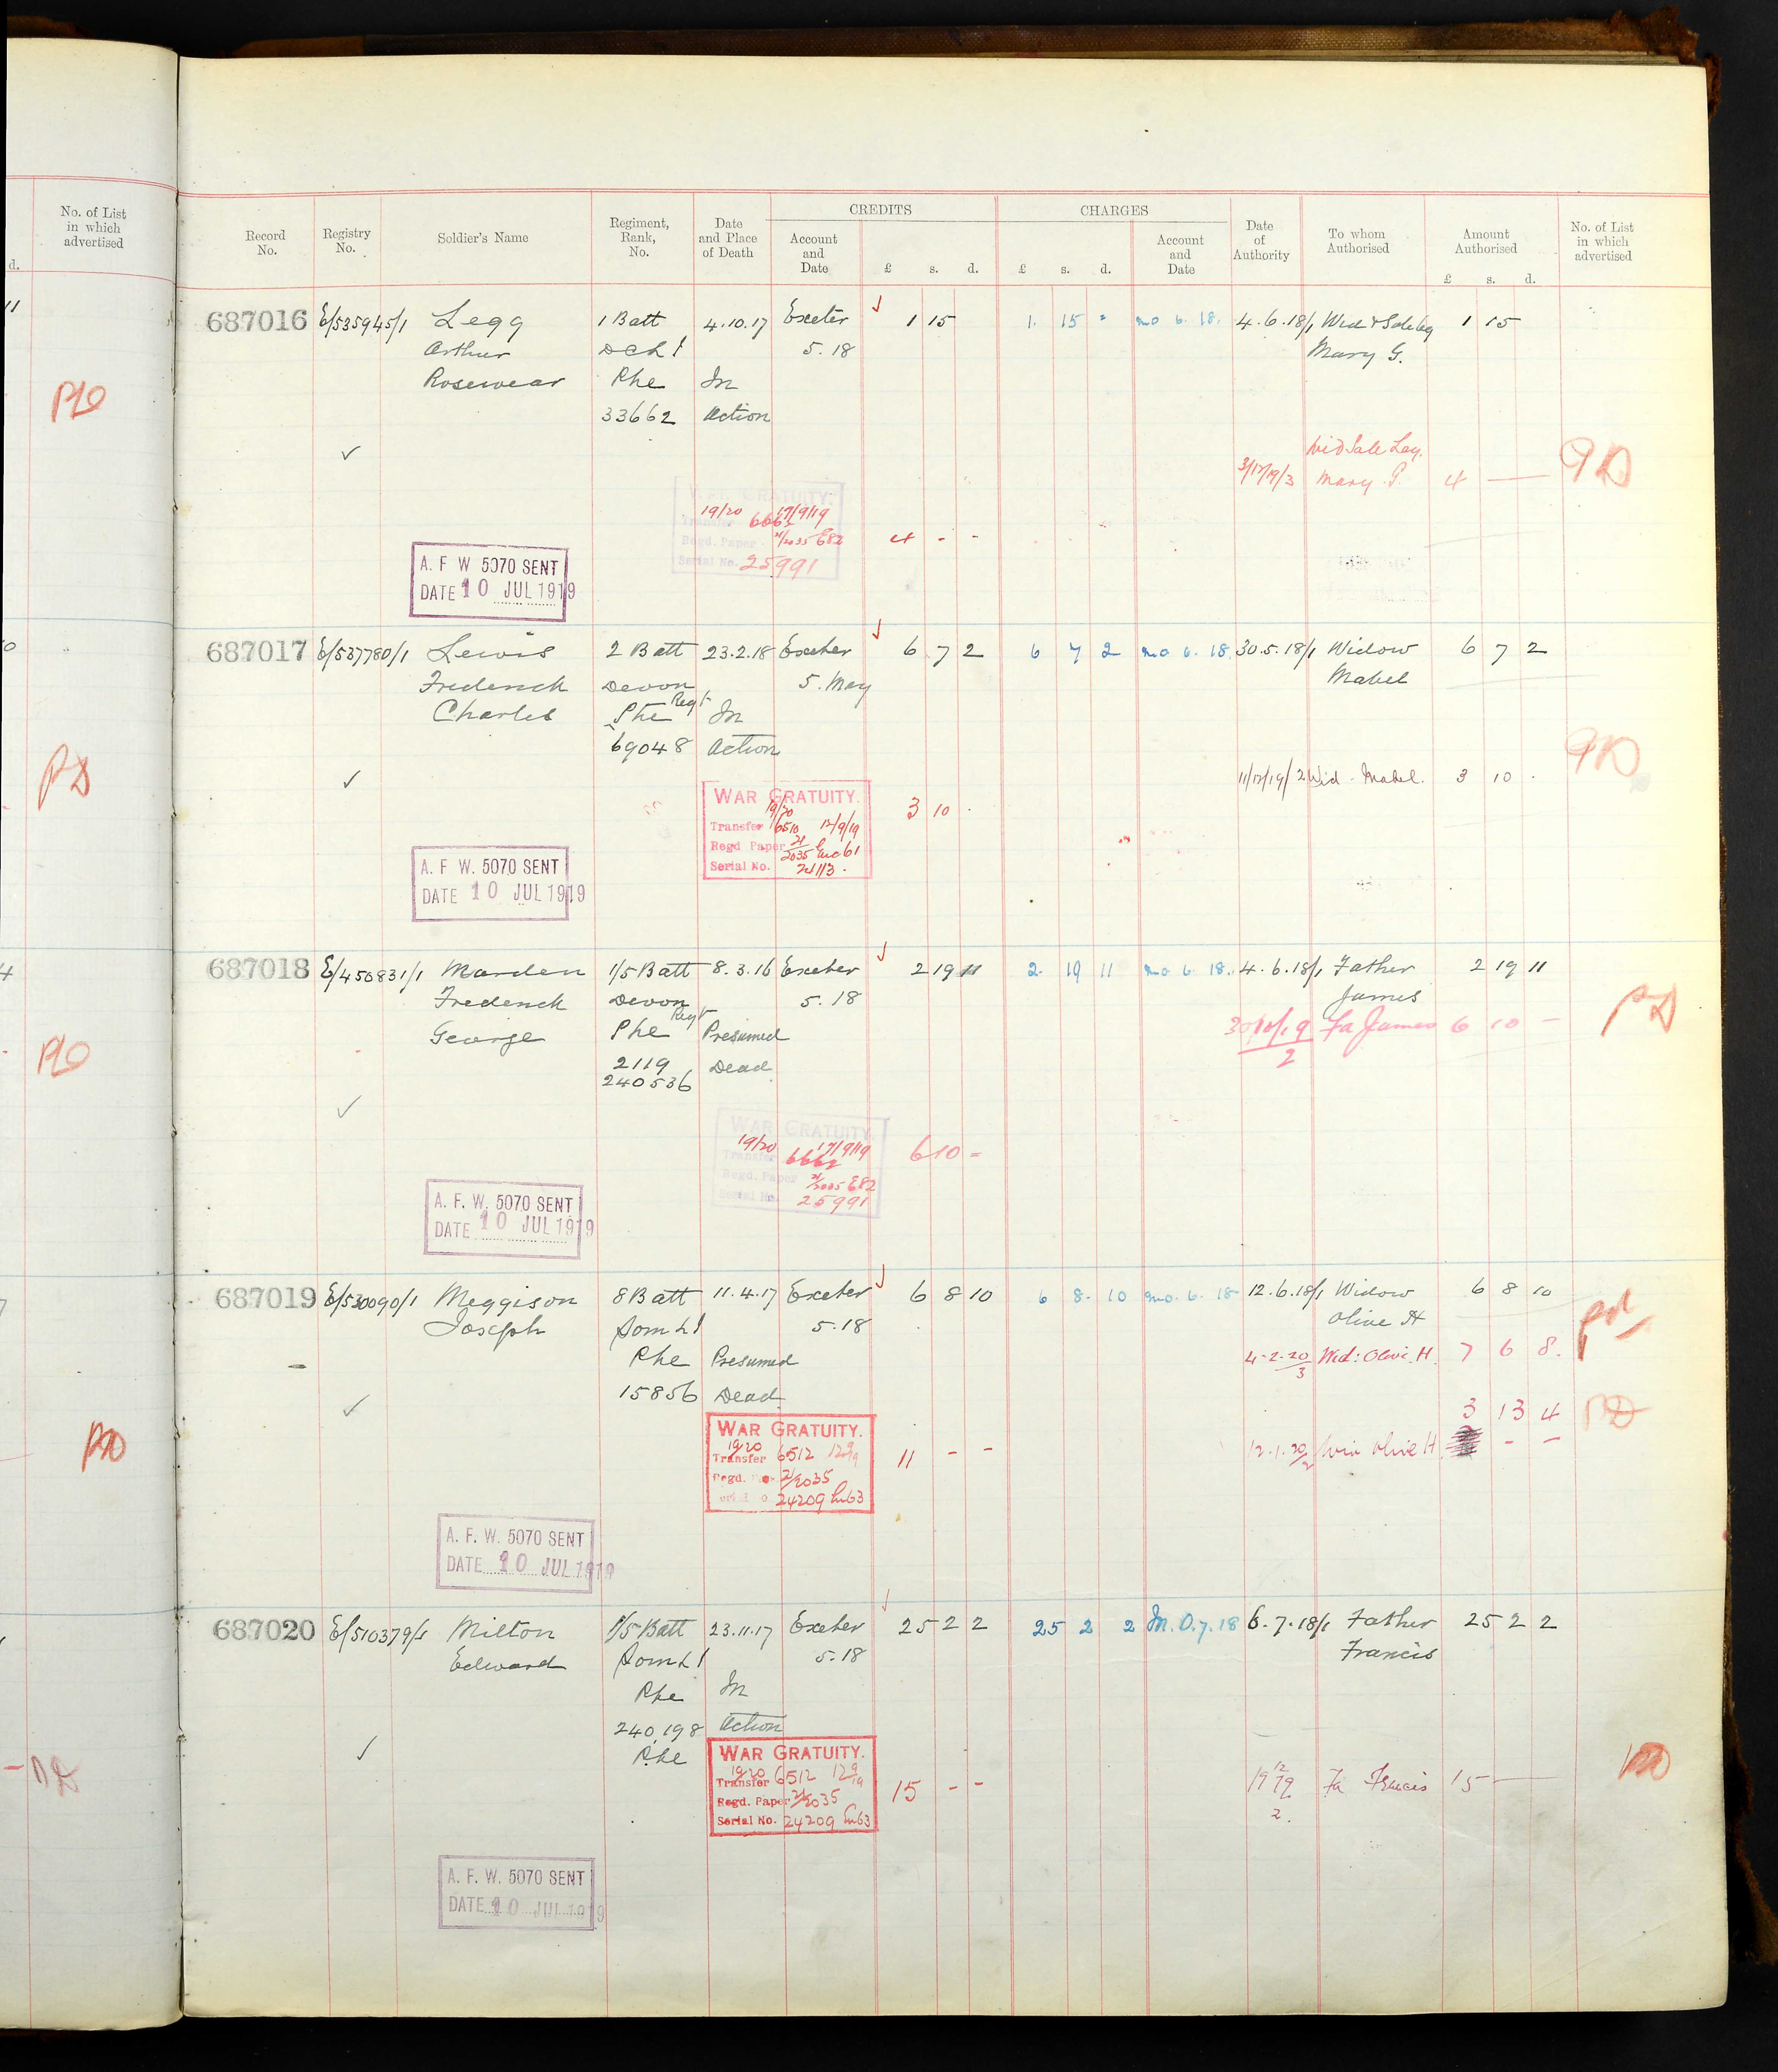 No. of List
in which
advertised
d.
11
PD
PD
4
PD
PD
PD
CREDITS
CHARGES
Record
No.
Registry
No.
Soldier's Name
Regiment,
Rank,
No.
Date
and Place
of Death
Account
and
Date
£ s. d.
£ s. d.
Account
and
Date
Date
of
Authority
To whom
Authorised
Amount
Authorised
£ s. d.
No. of List
in which
advertised
687016 E/535945/1 Legg 1 Batt 4.10.17 Exeter 1 15 1. 15 - mo 6. 18. 4.6.18/1 Wid & Sole Leg 1 15
Arthur DCLI 5.18 Mary G.
Rosewear Pte In
33662 Action
Wid Sole Leg.
3/12/19/3 Mary G. 4 — PD
WAR GRATUITY.
19/20 17/9/19
Transfer 6662
Regd. Paper 21/2035 E82 4 - -
Serial No. 25991
A. F W 5070 SENT
DATE 10 JUL 1919
687017 E/537780/1 Lewis 2 Batt 23.2.18 Exeter 6 7 2 6 7 2 mo 6. 18. 30.5.18/1 Widow 6 7 2
Frederick Devon 5. May Mabel
Charles Regt
Pte In
69048 Action
11/12/19/2 Wid. Mabel. 3 10 . PD
WAR GRATUITY.
19/20 3 10 .
Transfer 6510 12/9/19
Regd Paper 21/2035 Enc 61
Serial No. 24113.
A. F W. 5070 SENT
DATE 10 JUL 1919
687018 E/450831/1 Marden 1/5 Batt 8.3.16 Exeter 2 19 11 2. 19 11 mo 6 18. 4.6.18/1 Father 2 19 11
Frederick Devon 5.18 James
George Regt
Pte Presumed 30/10/19/2 Fa James 6 10 — PD
2119 Dead
240536
WAR GRATUITY.
19/20 17/9/19 6 10 -
Transfer 6662
Regd. Paper 21/2035 E82
Serial No. 25991
A. F. W. 5070 SENT
DATE 10 JUL 1919
687019 E/530090/1 Meggison 8 Batt 11.4.17 Exeter 6 8 10 6 8. 10 mo. 6. 18 12.6.18/1 Widow 6 8 10
Joseph Som LI 5.18 Olive H
Pte Presumed 4-2-20/3 Wid: Olive H. 7 6 8. pd
15856 Dead
3 13 4 PD
12.1.20/2 Wid Olive H - -
WAR GRATUITY.
19/20
Transfer 6512 12/9/19 11 - -
Regd. 21/2035
24209 En63
A. F. W. 5070 SENT
DATE 10 JUL 1919
687020 E/510379/1 Milton 1/5 Batt 23.11.17 Exeter 25 2 2 25 2 2 M.O.7.18 6.7.18/1 Father 25 2 2
Edward Som LI 5.18 Francis
Pte In
240,198 Action
Pte
WAR GRATUITY.
19/20
Transfer 6512 12/9/19 15 - - 19 12/19 2. Fa Francis 15 — PD
Regd. Paper 21/2035
Serial No. 24209 En63
A. F. W. 5070 SENT
DATE 10 JUL 1919